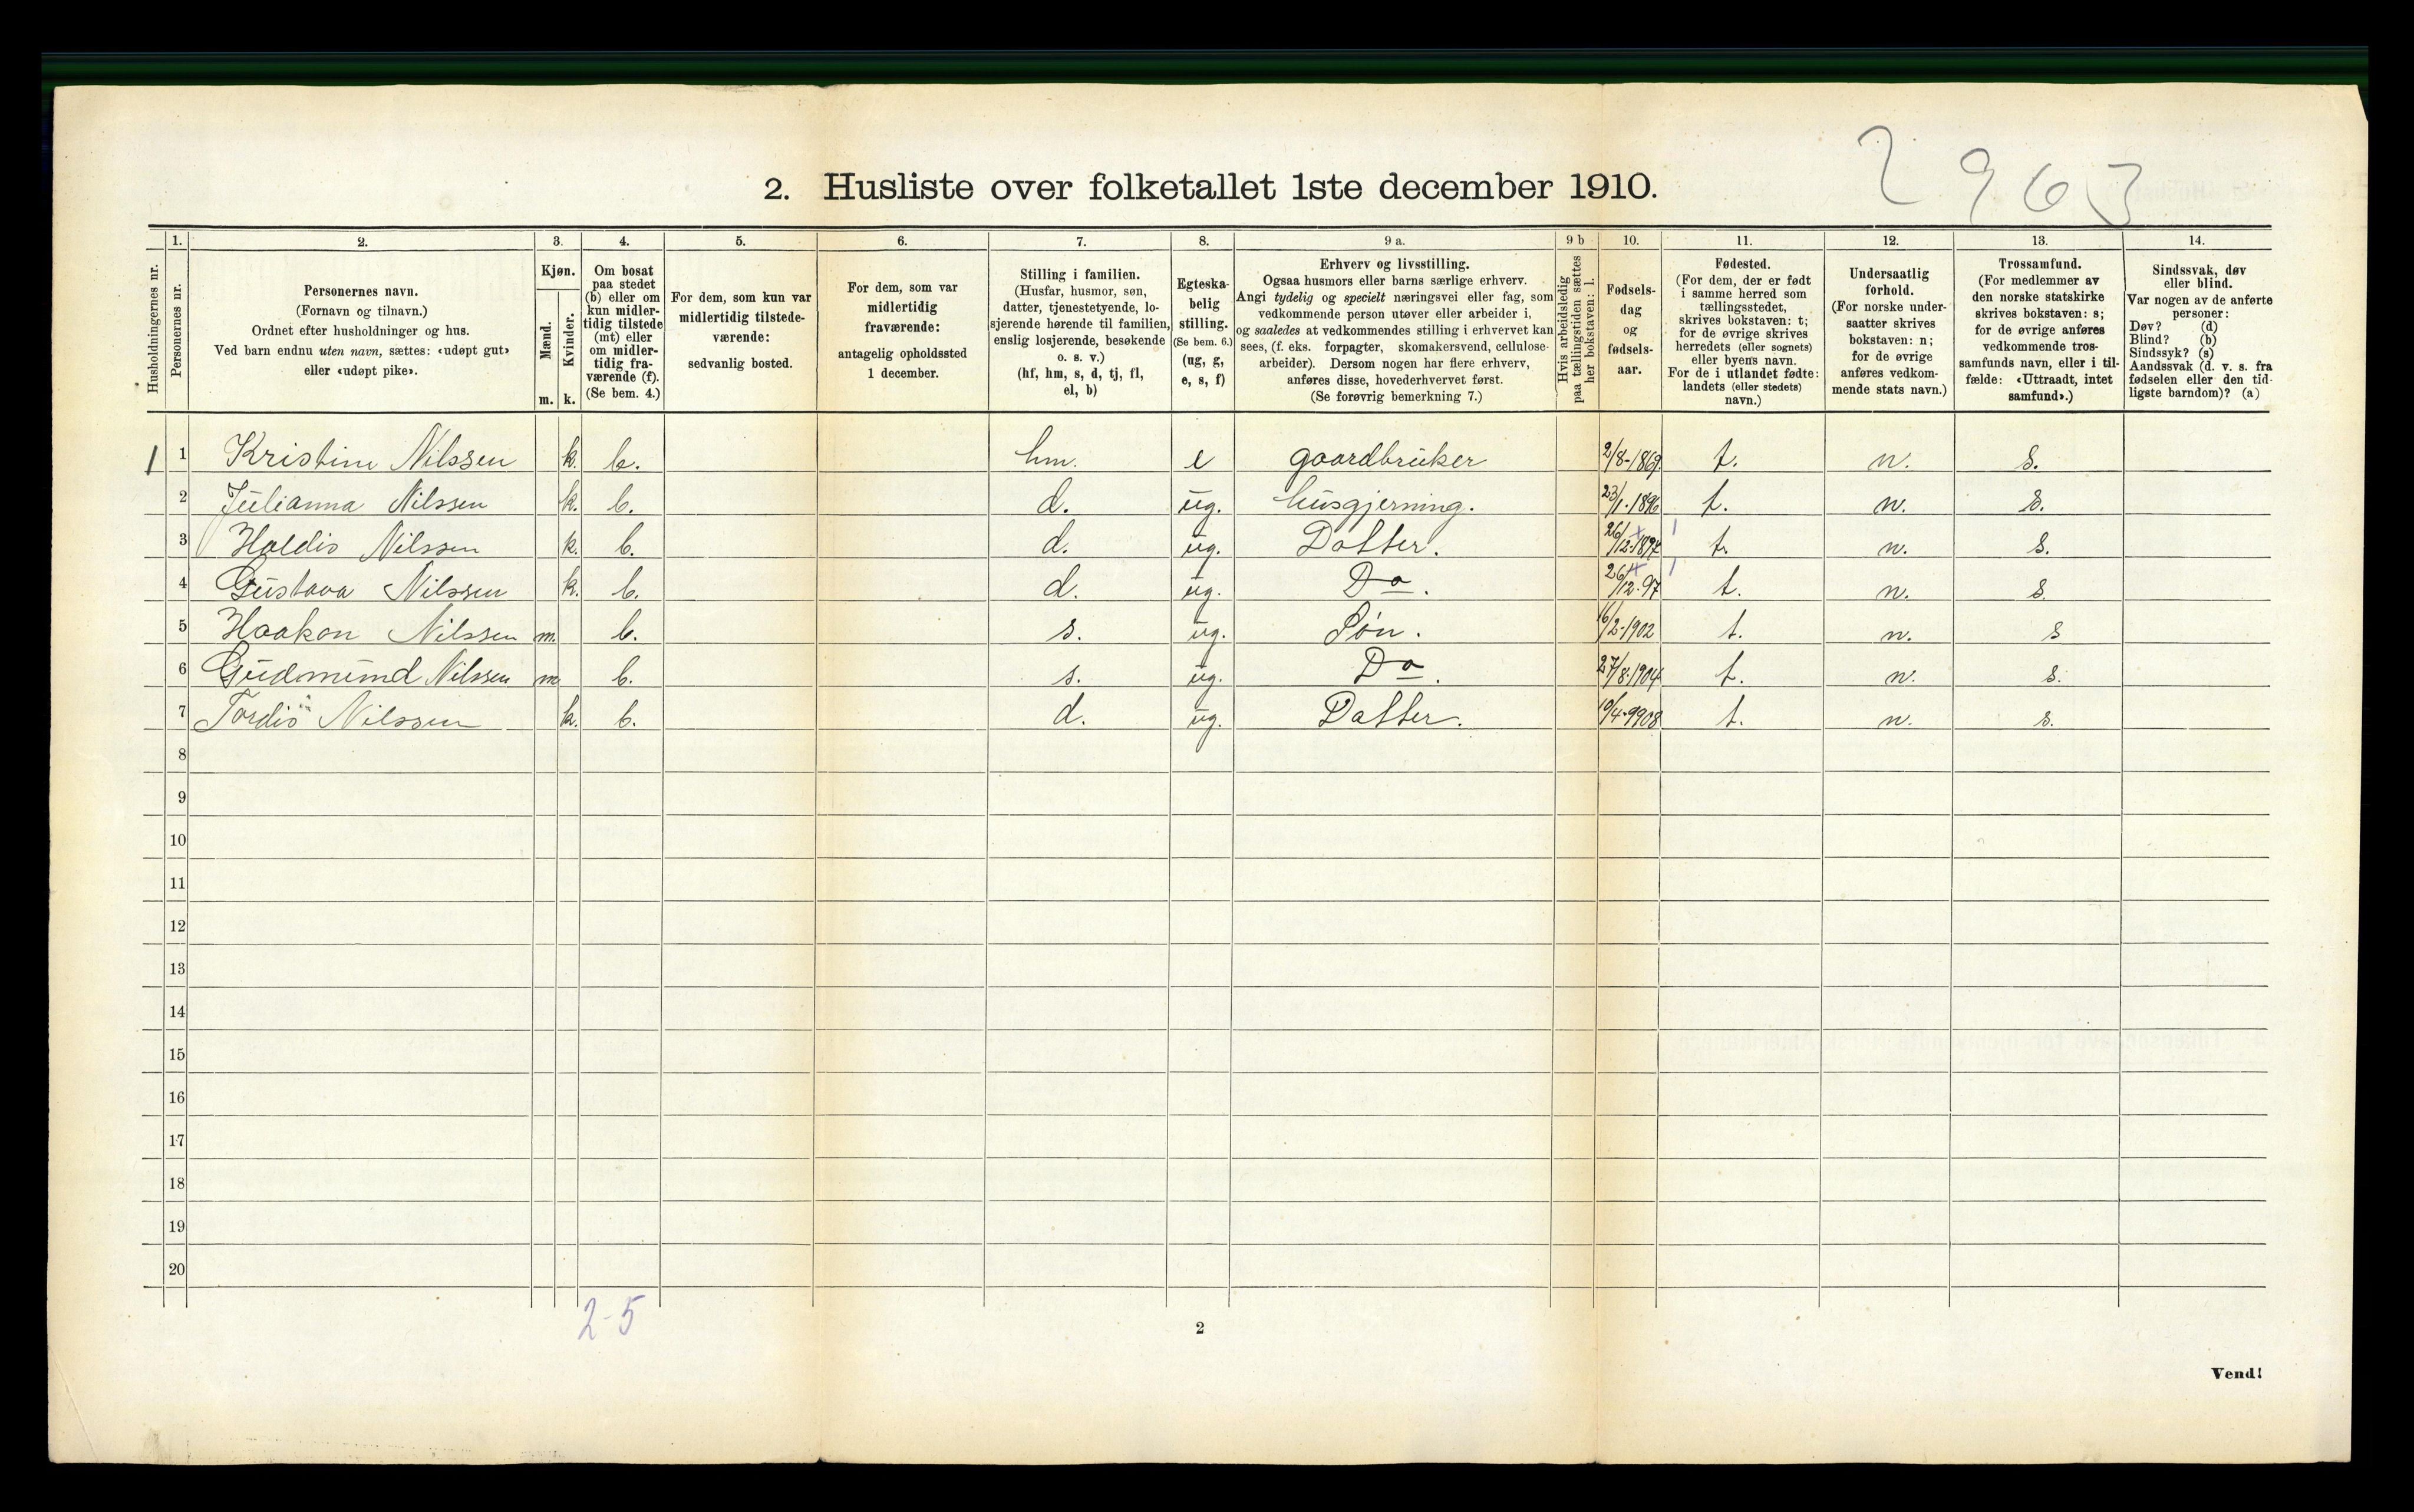 2963
2. Husliste over folketallet 1ste december 1910.
1. 2. 3. 4. 5. 6. 7. 8. 9 a. 9 b 10. 11. 12. 13. 14.
Husholdningernes nr.
Personernes nr.
Personernes navn.
(Fornavn og tilnavn.)
Ordnet efter husholdninger og hus.
Ved barn endnu uten navn, sættes: «udøpt gut»
eller «udøpt pike».
Kjøn.
Mænd.
Kvinder.
m. k.
Om bosat
paa stedet
(b) eller om
kun midler-
tidig tilstede
(mt) eller
om midler-
tidig fra-
værende (f).
(Se bem. 4.)
For dem, som kun var
midlertidig tilstede-
værende:
sedvanlig bosted.
For dem, som var
midlertidig
fraværende:
antagelig opholdssted
1 december.
Stilling i familien.
(Husfar, husmor, søn,
datter, tjenestetyende, lo-
sjerende hørende til familien,
enslig losjerende, besøkende
o. s. v.)
(hf, hm, s, d, tj, fl,
el, b)
Egteska-
belig
stilling.
(Se bem. 6.)
(ug, g,
e, s, f)
Erhverv og livsstilling.
Ogsaa husmors eller barns særlige erhverv.
Angi tydelig og specielt næringsvei eller fag, som
vedkommende person utøver eller arbeider i,
og saaledes at vedkommendes stilling i erhvervet kan
sees, (f. eks. forpagter, skomakersvend, cellulose-
arbeider). Dersom nogen har flere erhverv,
anføres disse, hovederhvervet først.
(Se forøvrig bemerkning 7.)
Hvis arbeidsledig
paa tællingstiden sættes
her bokstaven: l.
Fødsels-
dag
og
fødsels-
aar.
Fødested.
(For dem, der er født
i samme herred som
tællingsstedet,
skrives bokstaven: t;
for de øvrige skrives
herredets (eller sognets)
eller byens navn.
For de i utlandet fødte:
landets (eller stedets)
navn.)
Undersaatlig
forhold.
(For norske under-
saatter skrives
bokstaven: n;
for de øvrige
anføres vedkom-
mende stats navn.)
Trossamfund.
(For medlemmer av
den norske statskirke
skrives bokstaven: s;
for de øvrige anføres
vedkommende tros-
samfunds navn, eller i til-
fælde: «Uttraadt, intet
samfund».)
Sindssvak, døv
eller blind.
Var nogen av de anførte
personer:
Døv? (d)
Blind? (b)
Sindssyk? (s)
Aandssvak (d. v. s. fra
fødselen eller den tid-
ligste barndom)? (a)
1 1 Kristine Nilssen k. b. hm. e gaardbruker 2/8-1869. t. n. s.
2 Julianna Nilssen k. b. d. ug. husgjerning. 23/1.1896 t. n. s.
3 Haldis Nilssen k. b. d. ug. Datter. 26/12.1897 t. n. s.
4 Gustava Nilssen k. b. d. ug. Do. 26/12.97 t. n. s.
5 Haakon Nilssen m. b. s. ug. Søn. 16/2-1902 t. n. s
6 Gudmund Nilssen m b. s. ug. Do. 27/8.1904 t. n. s.
7 Tordis Nilssen k. b. d. ug. Datter. 10/4-9908 t. n. s.
8
9
10
11
12
13
14
15
16
17
18
19
20
2-5
2
Vend!